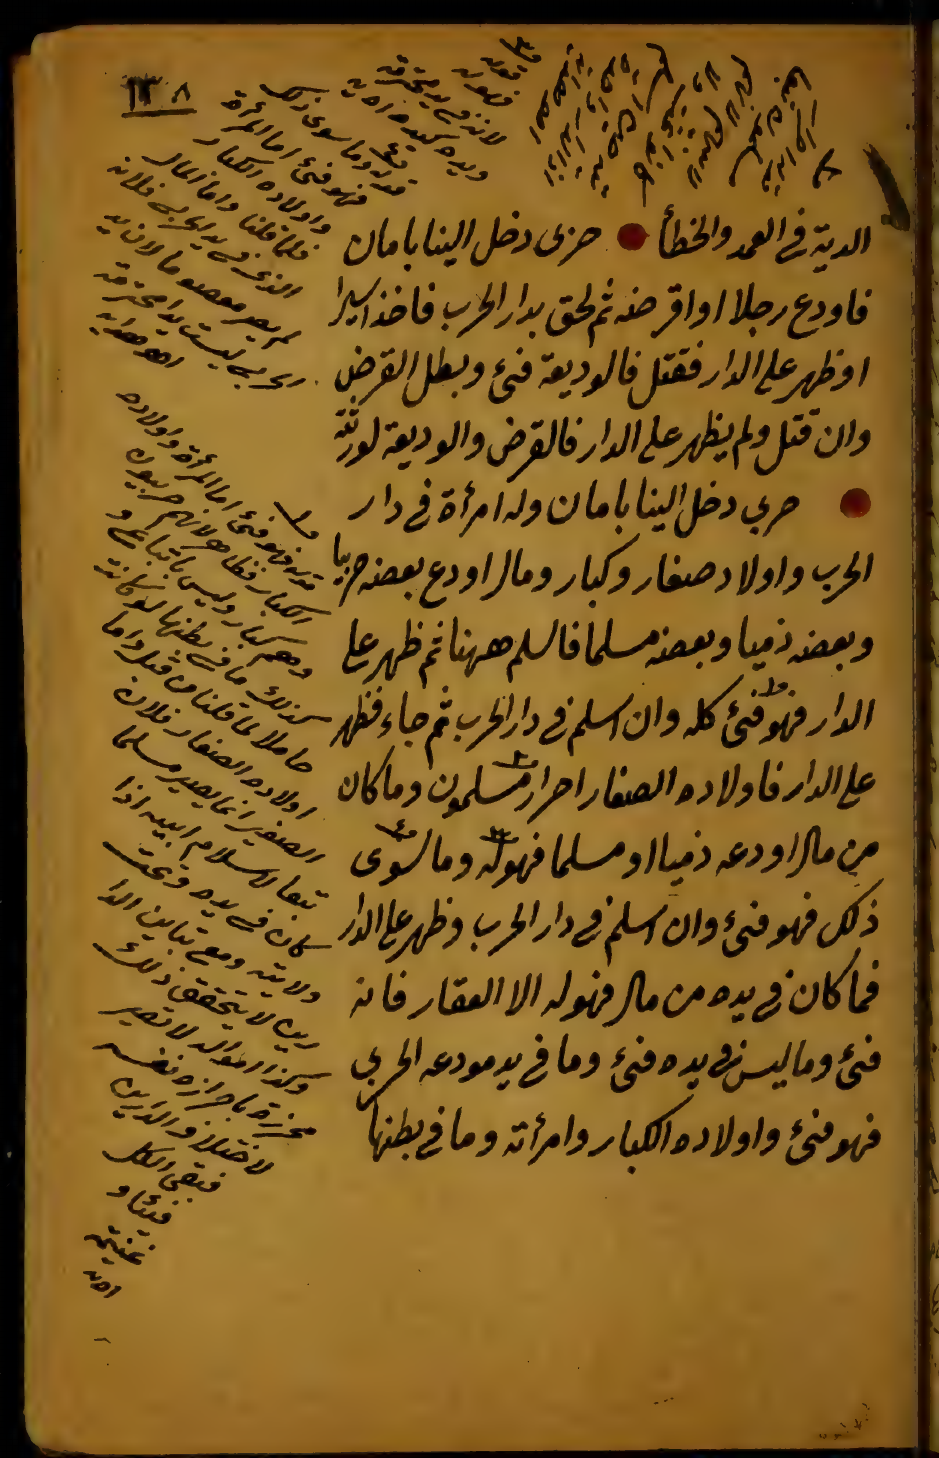 ١٣٨
الدية في العمد والخطأ حربى دخل الينا بامان
فاودع رجلا او اقرضه ثم لحق بدار الحرب فاخذ اسيرا
او ظهر على الدار فقتل فالوديعة فئ وبطل القرض
وان قتل ولم يظهر على الدار فالقرض والوديعة لورثته
حربي دخل الينا بامان وله امرأة في دار
الحرب واولاد صغار وكبار ومال اودع بعضه حربيا
وبعضه ذميا وبعضه مسلما فاسلم ههنا ثم ظهر على
الدار فهو فئ كله وان اسلم في دار الحرب ثم جاء فظهر
على الدار فاولاده الصغار احرار مسلمون وما كان
من مال اودعه ذميا او مسلما فهو له وما سوى
ذلك فهو فئ وان اسلم في دار الحرب وظهر على الدار
فما كان في يده من مال فهو له الا العقار فانه
فئ وما ليس في يده فئ وما في يد مودعه الحربي
فهو فئ واولاده الكبار وامرأته وما في بطنها
فهو له
لانه في يد محترمة
ويده كيده هداية
قوله وما سوى ذلك
فهو فئ اما المرأة
واولاده الكبار
فلما قلنا واما المال
الذى في يد الحربي فلانه
لم يصر معصوما لان يد
الحربي ليست يدا محترمة
اهـ هداية
قوله فهو فئ اما المرأة واولاده
الكبار فظاهر لانهم حربيون
وهم كبار وليس باتباع و
كذلك ما في بطنها لو كانت
حاملا لما قلنا من قبل واما
اولاده الصغار فلان
الصغير انما يصير مسلما
تبعا لاسلام ابيه اذا
كان في يده وتحت
ولايته ومع تباين الدا
رين لا يتحقق ذلك
وكذا امواله لا تصير
محرزة باحرازه نفسه
لاختلاف الدارين
فبقى الكل
فيئا و
غنيمة